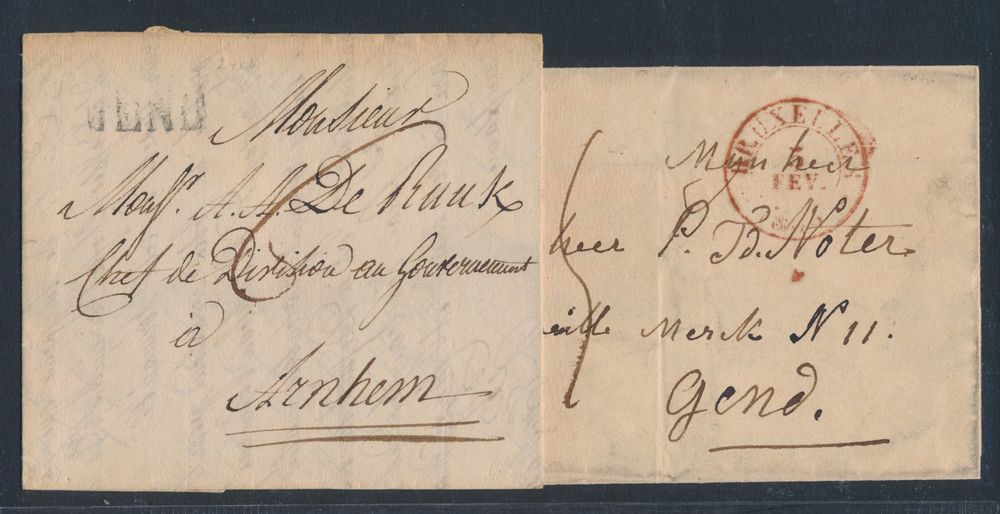 Monsieur
Monsr. A. A. De Ruuk
Chef de Division au Gouvernement
à
Arnhem
BRUXELLES
5
FEV.
Mynheer
heer P. B. Noter
Merck N 11.
Gend.